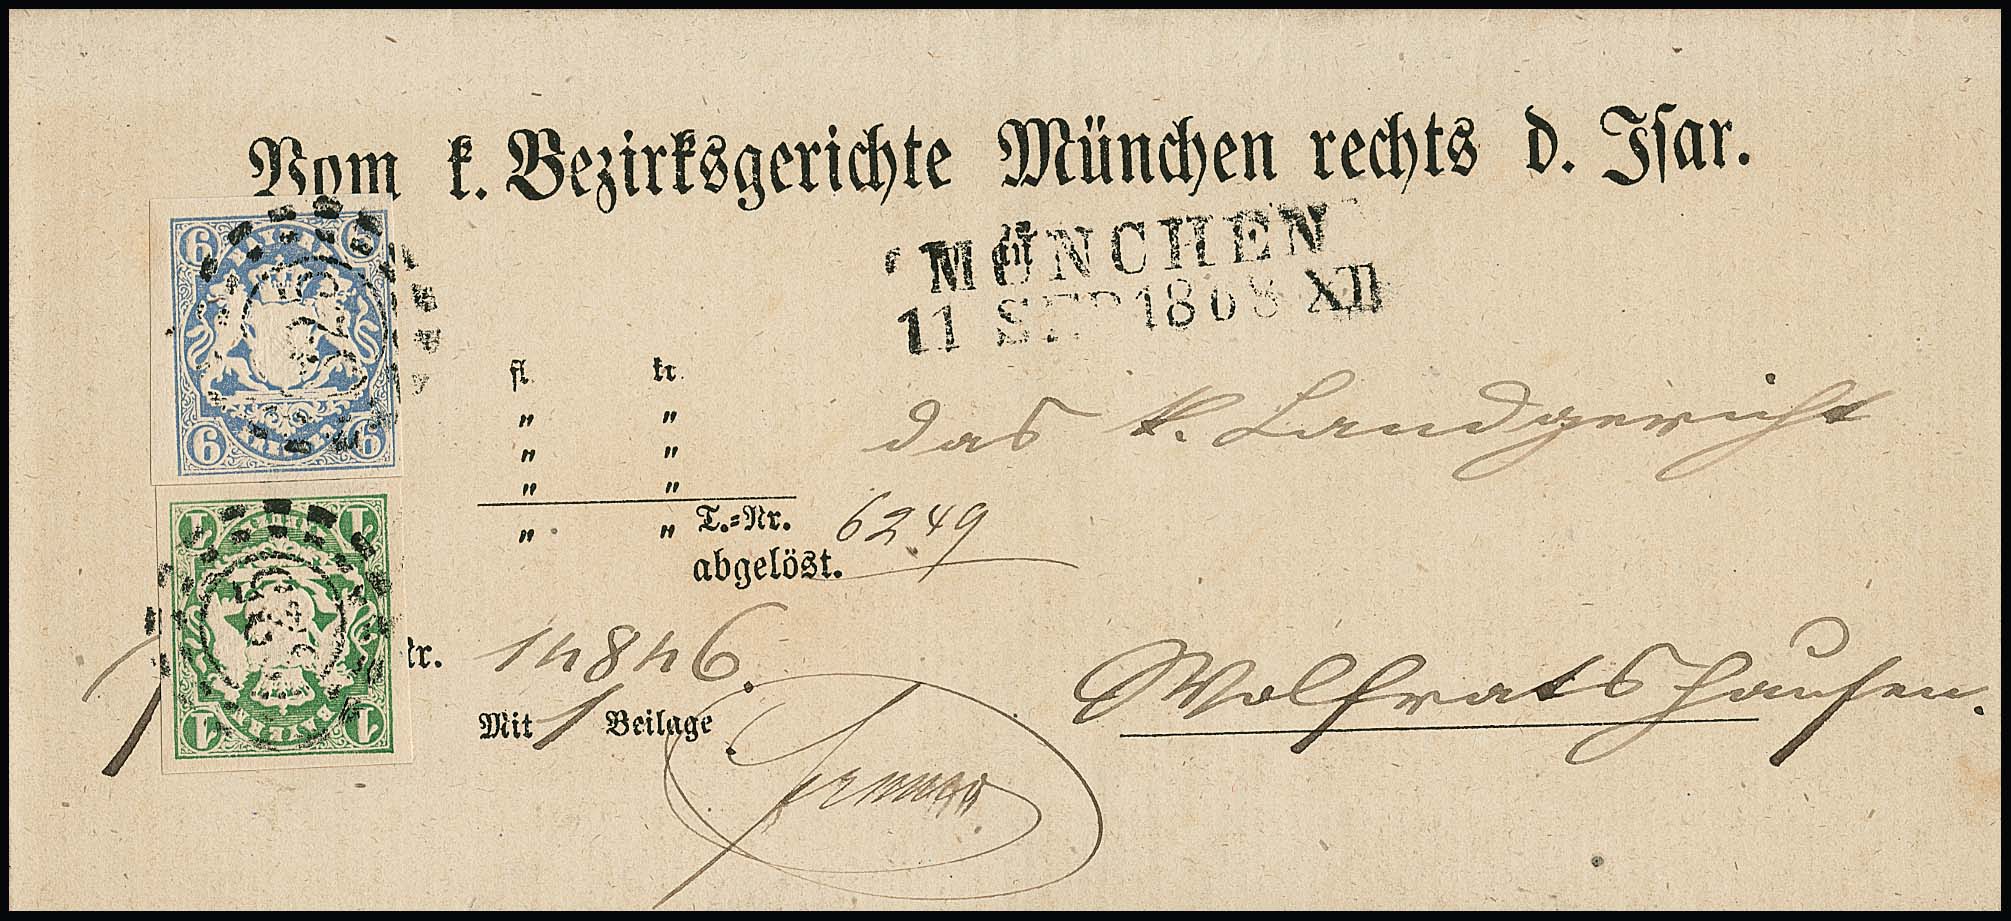 Vom k. Bezirksgerichte München rechts d. Isar.
an
MÜNCHEN
11 SEP 1868 XII
6 BAYERN 6
6 6
fl. kr.
" "
" "
" "
" " T.=Nr. 6249
abgelöst.
das k. Landgericht
1 1
1 BAYERN 1
Nr. 14846.
Mit 1 Beilage
Wolfratshausen.